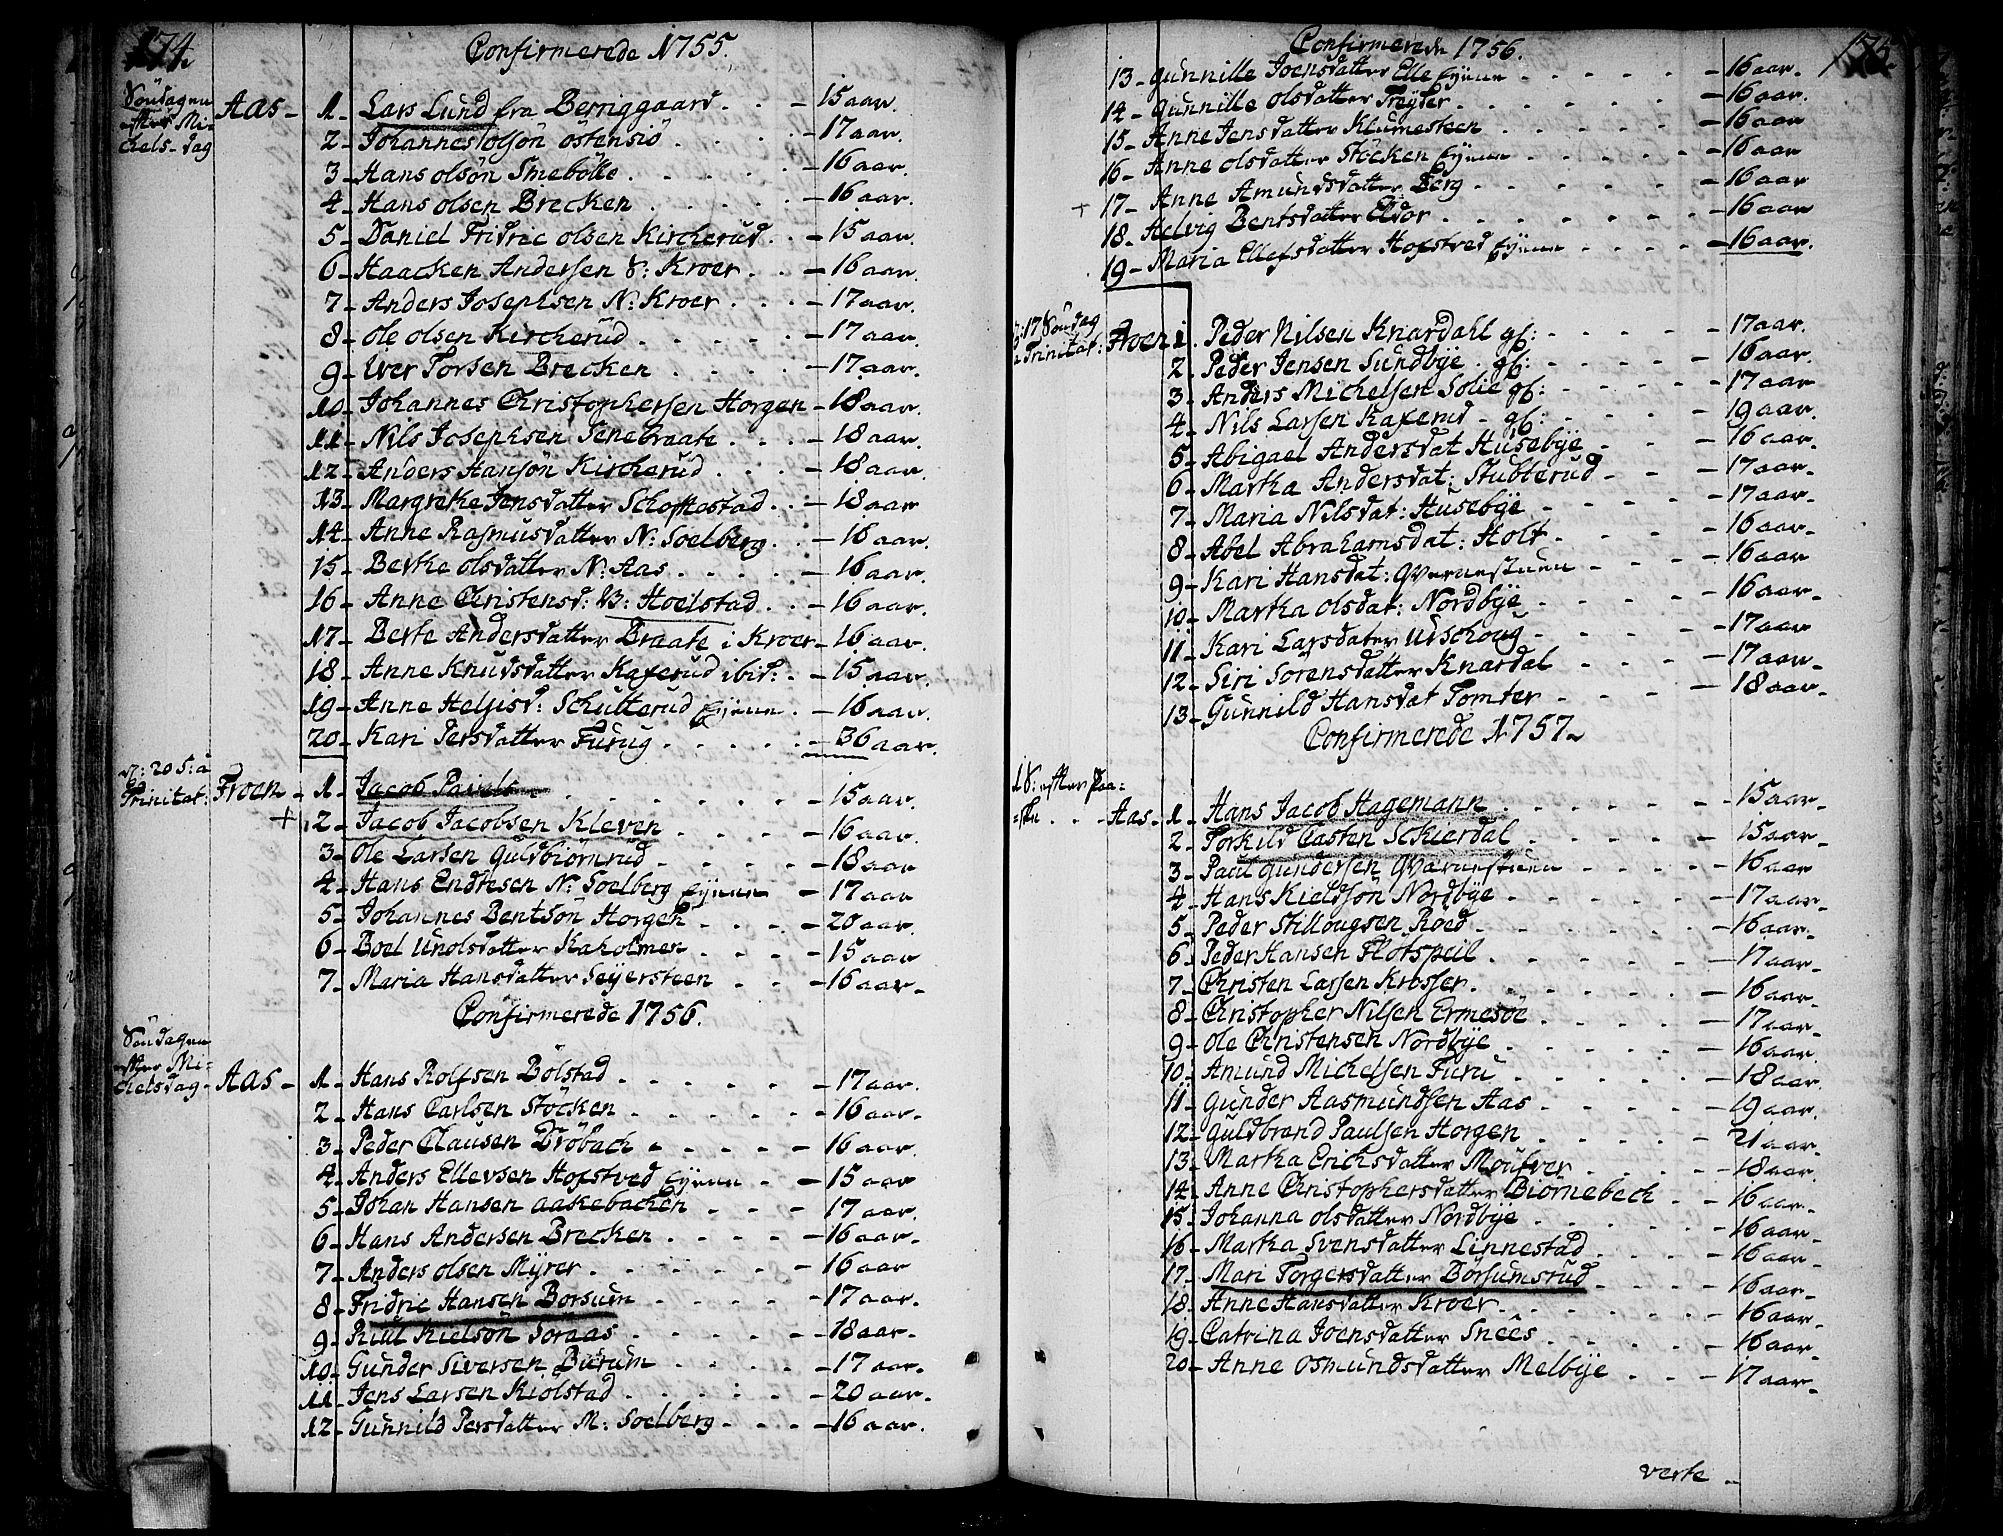 174.
Confirmerede 1755.
Söndagen
efter Mi-
chels-dag
Aas - 1 - Lars Lund fra Berriggaard . . - 15 aar.
2 - Johannes olsön östensiö . . . - 17 aar.
3 - Hans olsön Smebölle . . . . - 16 aar.
4 - Hans olsen Brecken . . . . - 16 aar.
5 - Daniel Fridric olsen Kircherud . . - 15 aar.
6 - Haacken Andersen S: Kroer . . - 16 aar.
7 - Anders Josephsen N: Kroer . . . - 17 aar.
8 - ole olsen Kircherud . . . . - 17 aar.
9 - Iver Torsen Brecken . . . . - 17 aar.
10 - Johannes Christophersen Horgen - 18 aar.
11 - Nils Josephsen Senebraate . . . - 18 aar.
12 - Anders Hansön Kircherud . . . - 18 aar.
13 - Margrethe Jensdatter . . - 18 aar
14 - Anne Rasmusdatter N: Soelberg . . - 16 aar.
15 - Berthe olsdatter N: Aas . . . . - 16 aar.
16 - Anne Christensd: V: Hoelstad . . - 16 aar.
17 - Berte Andersdatter Braate i Kroer - 16 aar.
18 - Anne Knudsdatter Kaxerud ibid: . - 15 aar.
19 - Anne Heljisd: Schulterud Ejene . - 16 aar.
20 - Kari Persdatter Furug . . . . . - 36 aar.
D: 20 S: a
Trinitat:
Froen - 1 - Jacob Paiels . . . . . . - 15 aar.
+ 2 - Jacob Jacobsen Kleven . . . . - 16 aar.
3 - Ole Larsen Guldbiörnrud . . . . - 18 aar
4 - Hans Endresen N: Soelberg Ejene - 17 aar
5 - Johannes Bentsön Horgen . . . - 20 aar.
6 - Boel unolsdatter Kaholmen . . . - 15 aar
7 - Maria Hansdatter Sejersteen . . . - 16 aar -
Confirmerede 1756.
Söndagen
efter Mi-
chelsdag -
Aas - 1 - Hans Rolfsen Bölstad . . . . . - 17 aar.
2 - Hans Carlsen Stöcken . . . . . - 16 aar -
3 - Peder Clausen Dröbach . . . . - 16 aar.
4 - Anders Ellevsen Hofstved Ejene . - 15 aar
5 - Johan Hansen aakebacken . . . - 17 aar.
6 - Hans Andersen Brecken . . . . - 16 aar -
7 - Anders olsen Myrer . . . . . . - 16 aar
8 - Fridric Hansen Borsum . . . . - 17 aar.
9 - Kielsön Söraas . . . . . - 18 aar -
10 - Gunder Siversen Burum . . . . - 17 aar -
11 - Jens Larsen Kiolstad . . . . . - 20 aar -
12 - Gunnild Persdatter M: Soelberg . . . - 16 aar
175.
Confirmerede 1756.
13 - gunnille Joensdatter Elle Ejene . . . . . - 16 aar -
14 - gunnille olsdatter Frejser . . . . . . - 16 aar.
15 - Anne Jensdatter Klumesteen . . . . . - 16 aar
16 - Anne olsdatter Stöcken Ejene . . . . . - 16 aar
+ 17 - Anne Amundsdatter Berg . . . . . . - 16 aar
18 - Helvig Bentsdatter Eldor . . . . . . - 16 aar
19 - Maria Ellefsdatter Hofstved Ejene . . . . - 16 aar.
D: 17 Söndag
a Trinitat:
Froen 1 . Peder Nilsen Knardahl gf: . . . . - 17 aar.
2 - Peder Jensen Sundbye . gf: . . . . - 16 aar.
3 - Anders Michelsen Solie gf: . . . . - 17 aar
4 - Nils Larsen Kaxerud - gf: . . . . - 19 aar.
5 - Abigael Andersdat Husebye . . . - 16 aar.
6 - Martha Andersdat: Stubberud - . . - 17 aar -
7 - Maria Nilsdat: Husebye . . . . - 17 aar -
8 - Abel Abrahamsdat: Holt . . . . - 16 aar -
9 - Kari Hansdat: Qvernestuen . . . . - 16 aar
10 - Martha olsdat: Nordbye . . . . . - 16 aar -
11 - Kari Larsdater Urschoug . . . . . - 17 aar
12 - Siri Sörensdatter Knardal . . . . - 17 aar -
13 - Gunnild Hansdat Tomter . . . . - 18 aar -
Confirmerede 1757 -
1 S: efter Paa-
ske . . .
Aas - 1 - Hans Jacob Hagemann . . . . . - 15 aar -
2 - Torkild Casten Schierdal . . . . . - 15 aar -
3 - Paul gundersen Qvernestuen . . . . - 16 aar
4 - Hans Kieldsön Nordbye . . . . . - 17 aar -
5 - Peder Stillougsen Roed . . . . . - 16 aar -
6 - Peder Hansen Flotspeil . . . . . - 17 aar -
7 - Christen Larsen Krosser . . . . . - 16 aar -
8 - Christopher Nilsen Ermesöe . . . . - 17 aar -
9 - Ole Christensen Nordbye . . . . . - 16 aar -
10 - Amund Michelsen Furu . . . . . - 18 aar.
11 - Gunder Aasmundsen Aas . . . . . - 19 aar.
12 - Guldbrand Paulsen Horgen . . . . - 21 aar -
13 - Martha Erichsdatter . . . . - 18 aar.
14 - Anne Christophersdatter Biörnebech . . - 16 aar -
15 - Johanna olsdatter Nordbye . . . . . - 16 aar -
16 - Martha Svensdatter Linnestad . . . . - 16 aar -
17 - Mari Torgersdatter Börsumsrud . . . . - 16 aar -
18 - Anne Hansdatter Kroer . . . . . . - 16 aar -
19 - Catrina Joensdatter Snees . . . . . - 16 aar -
20 - Anne Osmundsdatter Melbye . . . - 17 aar -
verte -